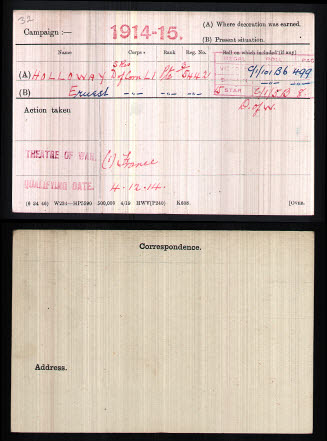 32
Campaign :— 1914-15. (A) Where decoration was earned.
(B) Present situation.
Name Corps Rank Reg. No. Roll on which included (if any)
MEDAL ROLL PAGE
(A) HOLLOWAY D of Corn LI Pte 5442 O/1/101 B6 499
(B) Ernest -„- -„- -„- STAR 8
Action taken D. of W.
THEATRE OF WAR. (1) France
QUALIFYING DATE. 4.12.14.
(6 34 46) W234—HP5590 500,000 4/19 HWV(P240) K608. [OVER.
Correspondence.
Address.